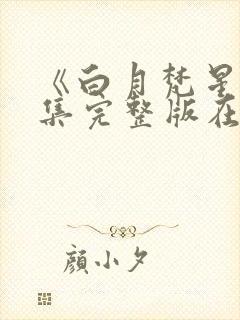 《白月梵星
集完整版在
顏小夕